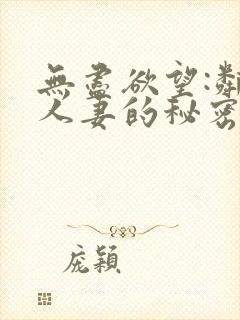 無盡欲望:鄰
人妻的秘密
庞穎